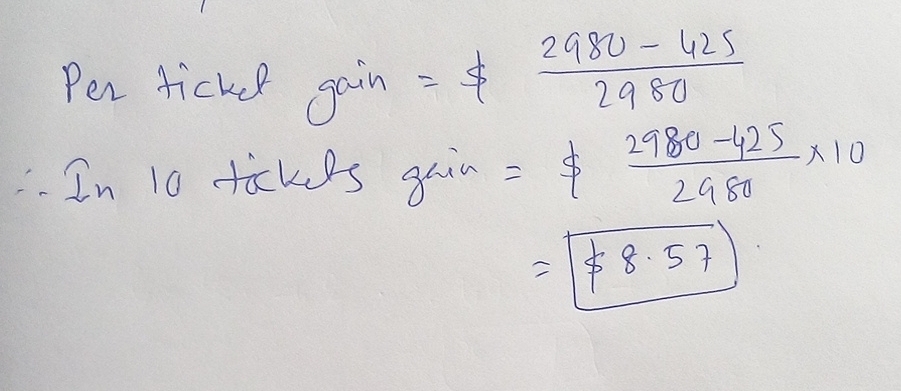 Per ticket gain = $ 2980 - 425 / 2980
∴ In 10 tickets gain = $ 2980 - 425 / 2980 × 10
= $ 8.57